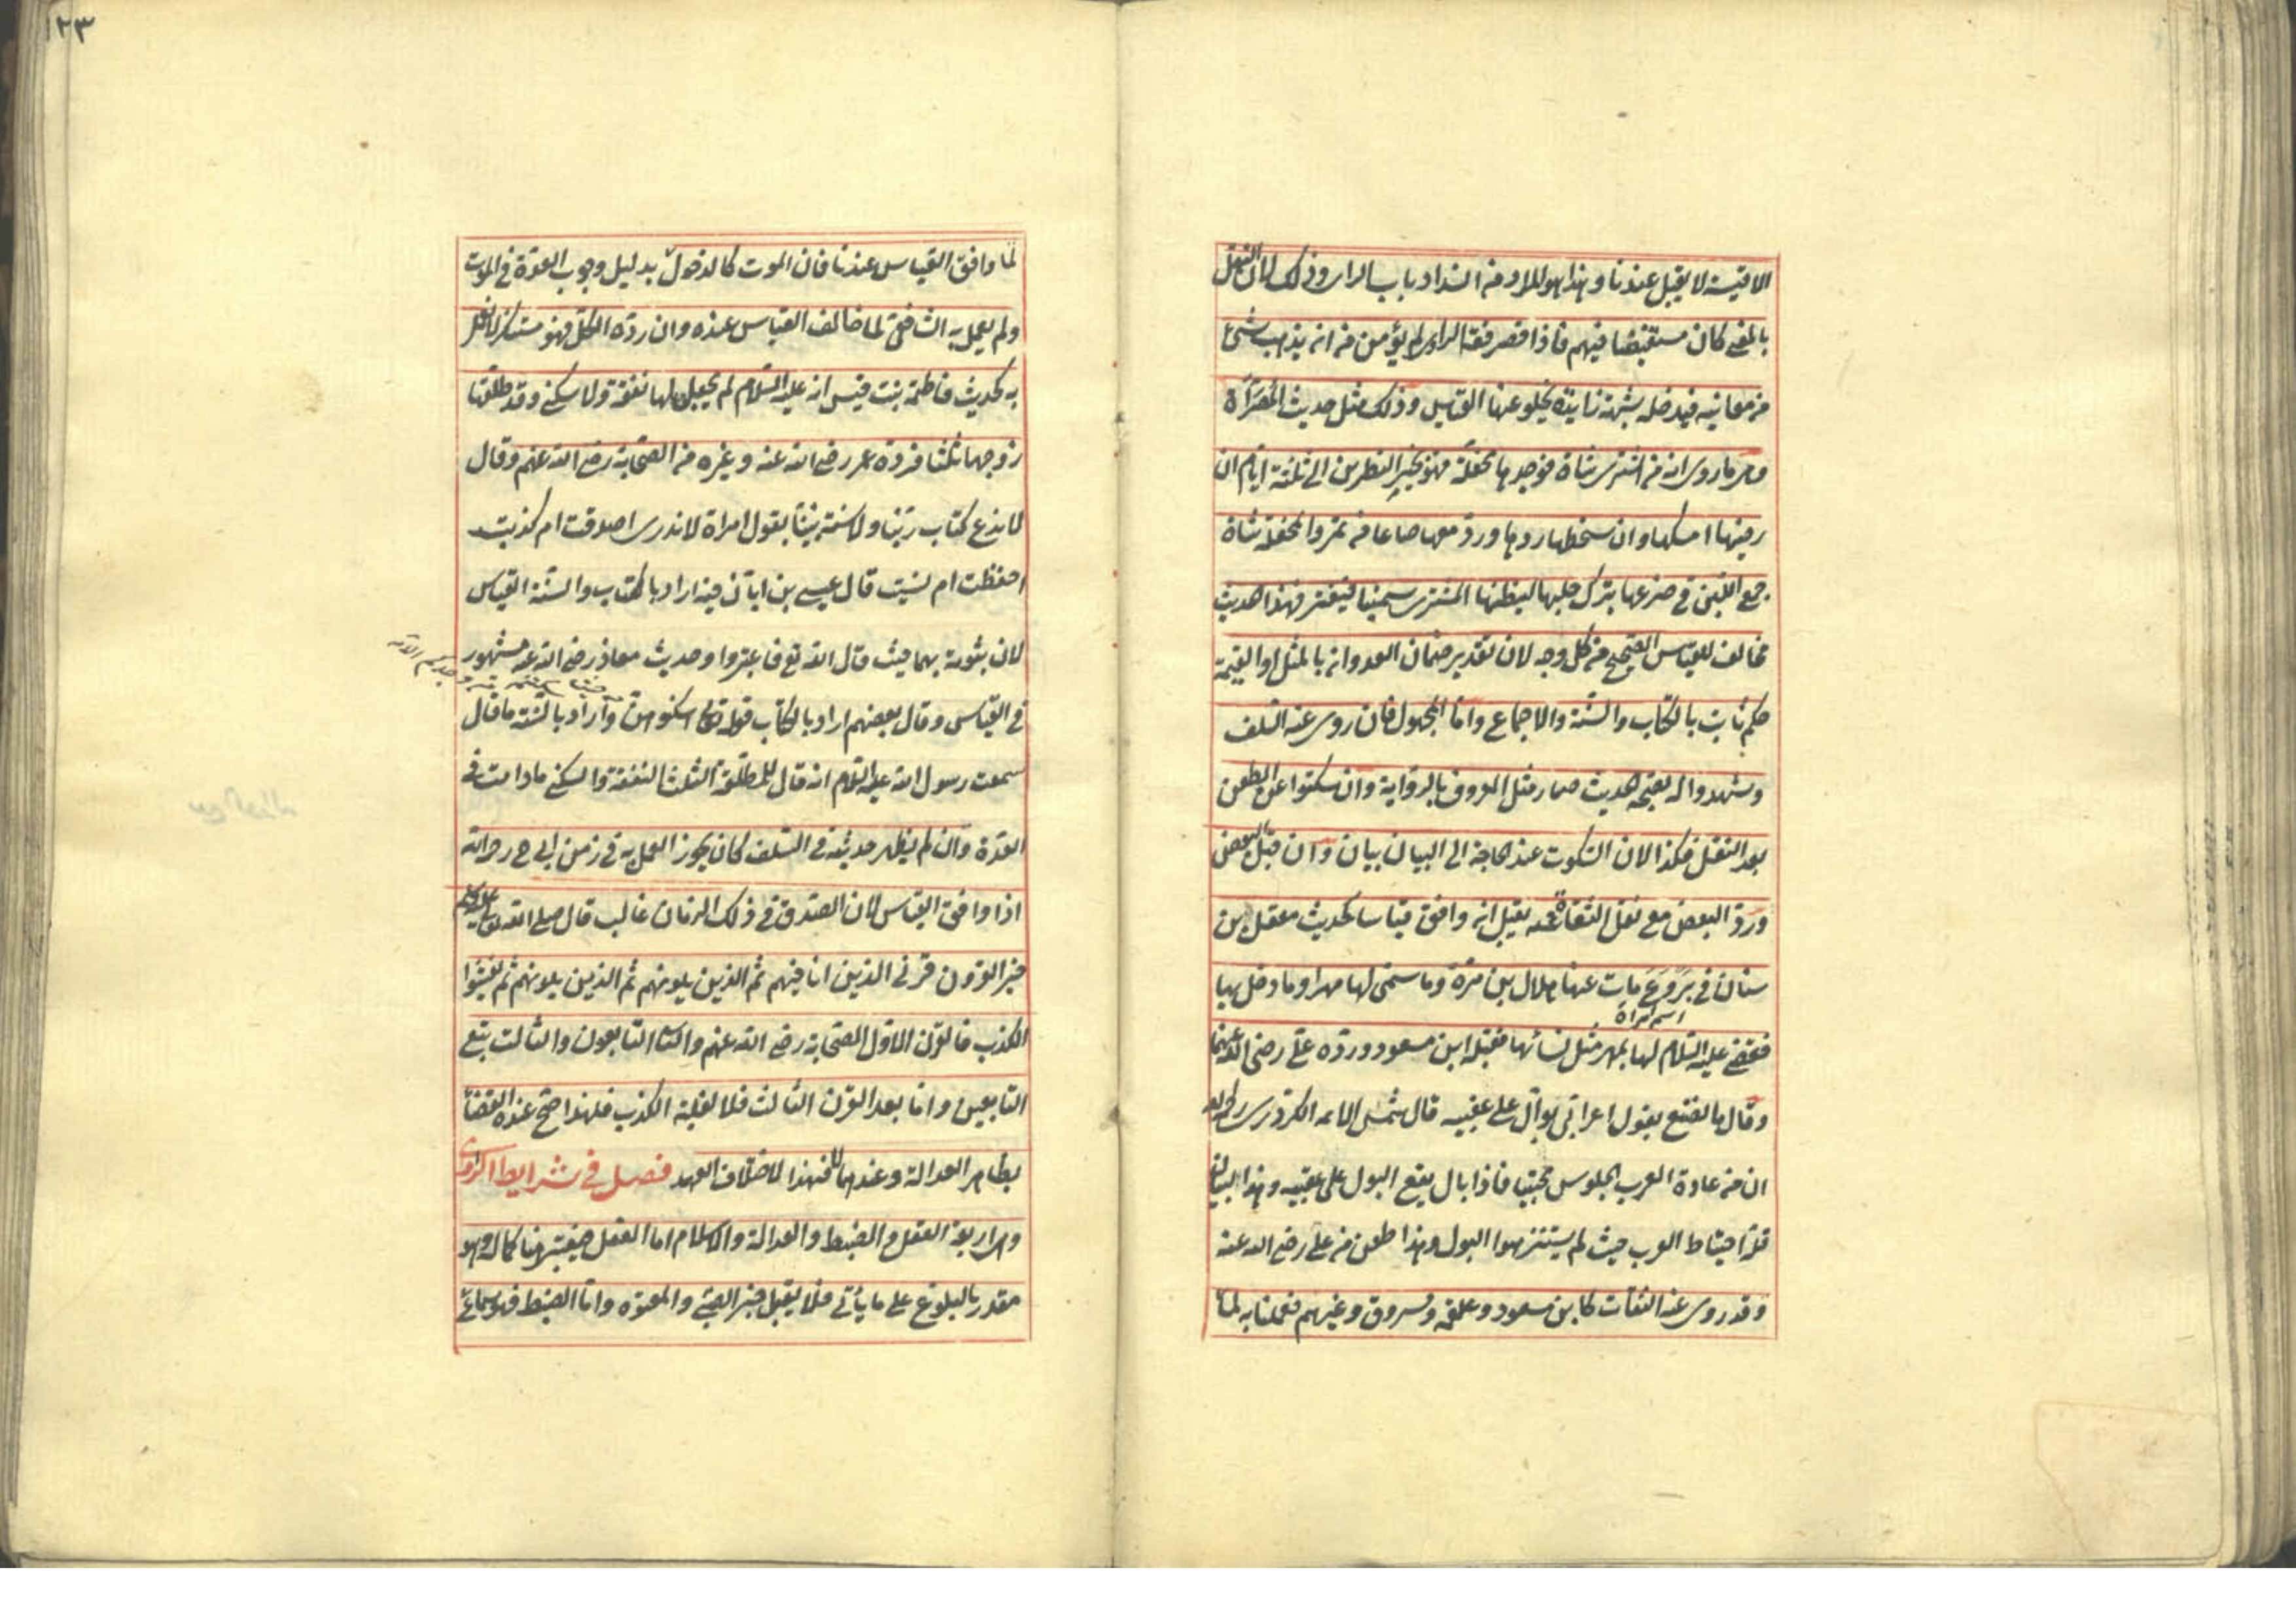 ١٢٣
الاقيسة لا يقبل عندنا وهذا هو المراد من انسداد باب الراى وذلك لان النقل
بالمعنى كان مستفيضا فيهم فاذا قصر فقه الراوى لم يؤمن من ان يذهب شئ
من معانيه فيدخله شبهة زايدة يخلو عنها القياس وذلك مثل حديث المُصَرَّاة
وهو ما روى انه من اشترى شاة فوجدها محفلة فهو بخير النظرين الى ثلثة ايام ان
رضيها امسكها وان سخطها ردها ورد معها صاعا من تمر والمحفلة شاة
جمع اللبن فى ضرعها بترك حلبها ليظنها المشترى سمينا فيغتر فهذا الحديث
مخالف للقياس الصحيح من كل وجه لان تقدير ضمان العدوان بالمثل او القيمة
حكم ثابت بالكتاب والسنة والاجماع واما المجهول فان روى عنه السلف
وشهدوا له بصحة الحديث صار مثل المعروف بالرواية وان سكتوا عن الطعن
بعد النقل فكذا لان السكوت عند الحاجة الى البيان بيان وان قبل البعض
ورد البعض مع نقل الثقاة عنه يقبل ان وافق قياسا كحديث معقل بن
سنان فى بَرْوَعَ مات عنها هلال بن مرة وما سمى لها مهرا وما دخل بها
اسم امراة
فقضى عليه السلام لها بمهر مثل نسائها فقبله ابن مسعود ورده على رضى الله عنهما
وقال ما نصنع بقول اعرابى بوال على عقبيه قال شمس الائمه الكردرى رحمه الله
ان من عادة العرب الجلوس محتبيا فاذا بال يقع البول على عقبيه وهذا لبيان
قلة احتياط العرب حيث لم يستنزهوا البول وهذا طعن من على رضى الله عنه
وقد روى عنه الثقات كابن مسعود وعلقمة ومسروق وغيرهم فعملنا به لما
لما وافق القياس عندنا فان الموت كالدخول بدليل وجوب العدة فى الموت
ولم يعمل به الشافعى لما خالف القياس عنده وان رده الكل فهو مستنكر لا يعمل
به كحديث فاطمة بنت قيس انه عليه السلام لم يجعل لها نفقة ولا سكنى وقد طلقها
زوجها ثلثا فرده عمر رضى الله عنه وغيره من الصحابة رضى الله عنهم وقال
لا ندع كتاب ربنا ولا سنة نبينا بقول امراة لا ندرى اصدقت ام كذبت
احفظت ام نسيت قال عيسى بن ابان فيه اراد بالكتاب والسنة القياس
لان ثبوته بهما حيث قال الله تع فاعتبروا وحديث معاذ رضى الله عنه مشهور
فى القياس وقال بعضهم اراد بالكتاب قوله تعالى اسكنوهن وأراد بالسنة ما قال
سمعت رسول الله عليه السلام انه قال للمطلقة الثلث النفقة والسكنى ما دامت فى
العدة وان لم يظهر حديثه فى السلف كان يجوز العمل به فى زمن ابى ح رحمه الله
اذا وافق القياس لان الصدق فى ذلك الزمان غالب قال صلى الله تع عليه وسلم
خير القرون قرنى الذين انا فيهم ثم الذين يلونهم ثم الذين يلونهم ثم يفشوا
الكذب فالقرن الاول الصحابة رضى الله عنهم والثانى التابعون والثالث تبع
التابعين واما بعد القرن الثالث فلا لغلبة الكذب فلهذا صح عنده القضاء
بظاهر العدالة وعندهما لا فهذا لاختلاف العهد فصل فى شرايط الراوى
وهى اربعة العقل والضبط والعدالة والاسلام اما العقل فيعتبر هنا كماله وهو
مقدر بالبلوغ على ما يأتى فلا يقبل خبر الصبى والمعتوه واما الضبط فهو سماع